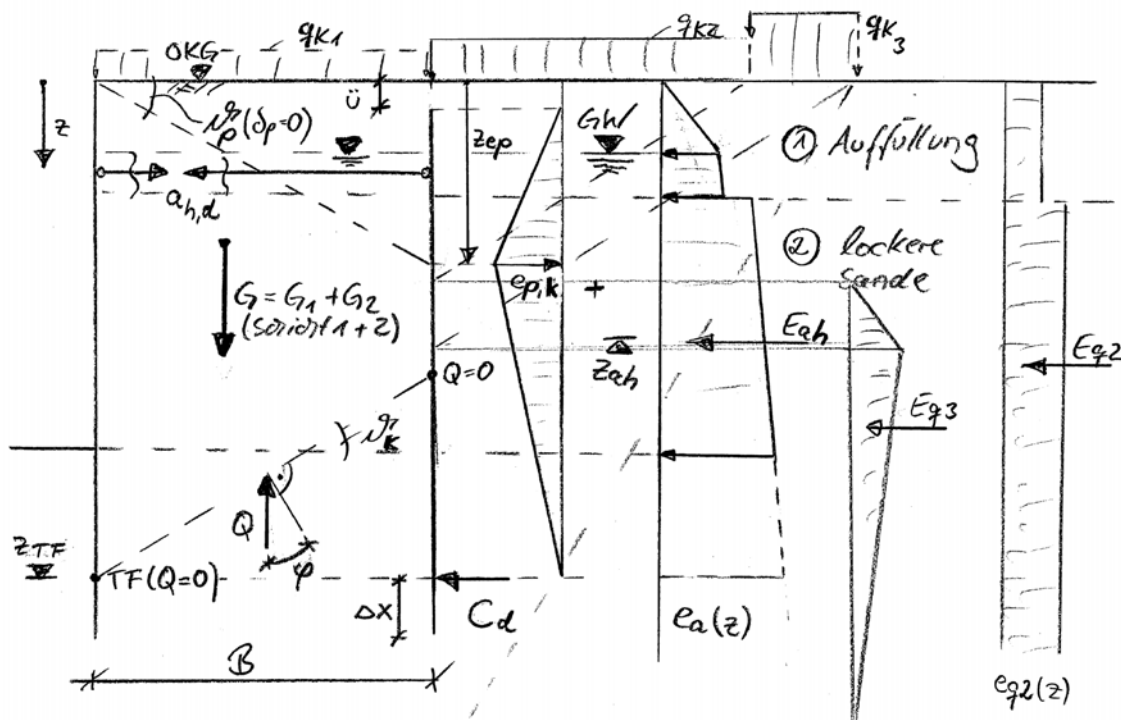 OKG
qK1
qK2
qK3
z
ϑp(δp=0)
ü
zep
GW
① Auffüllung
ah,d
② lockere
Sande
G = G1 + G2
(Schicht 1+2)
ep,k +
Eah
zah
Eq2
Eq3
Q=0
ϑk
Q
φ
zTF
TF(Q=0)
Δx
Cd
ea(z)
B
eq2(z)